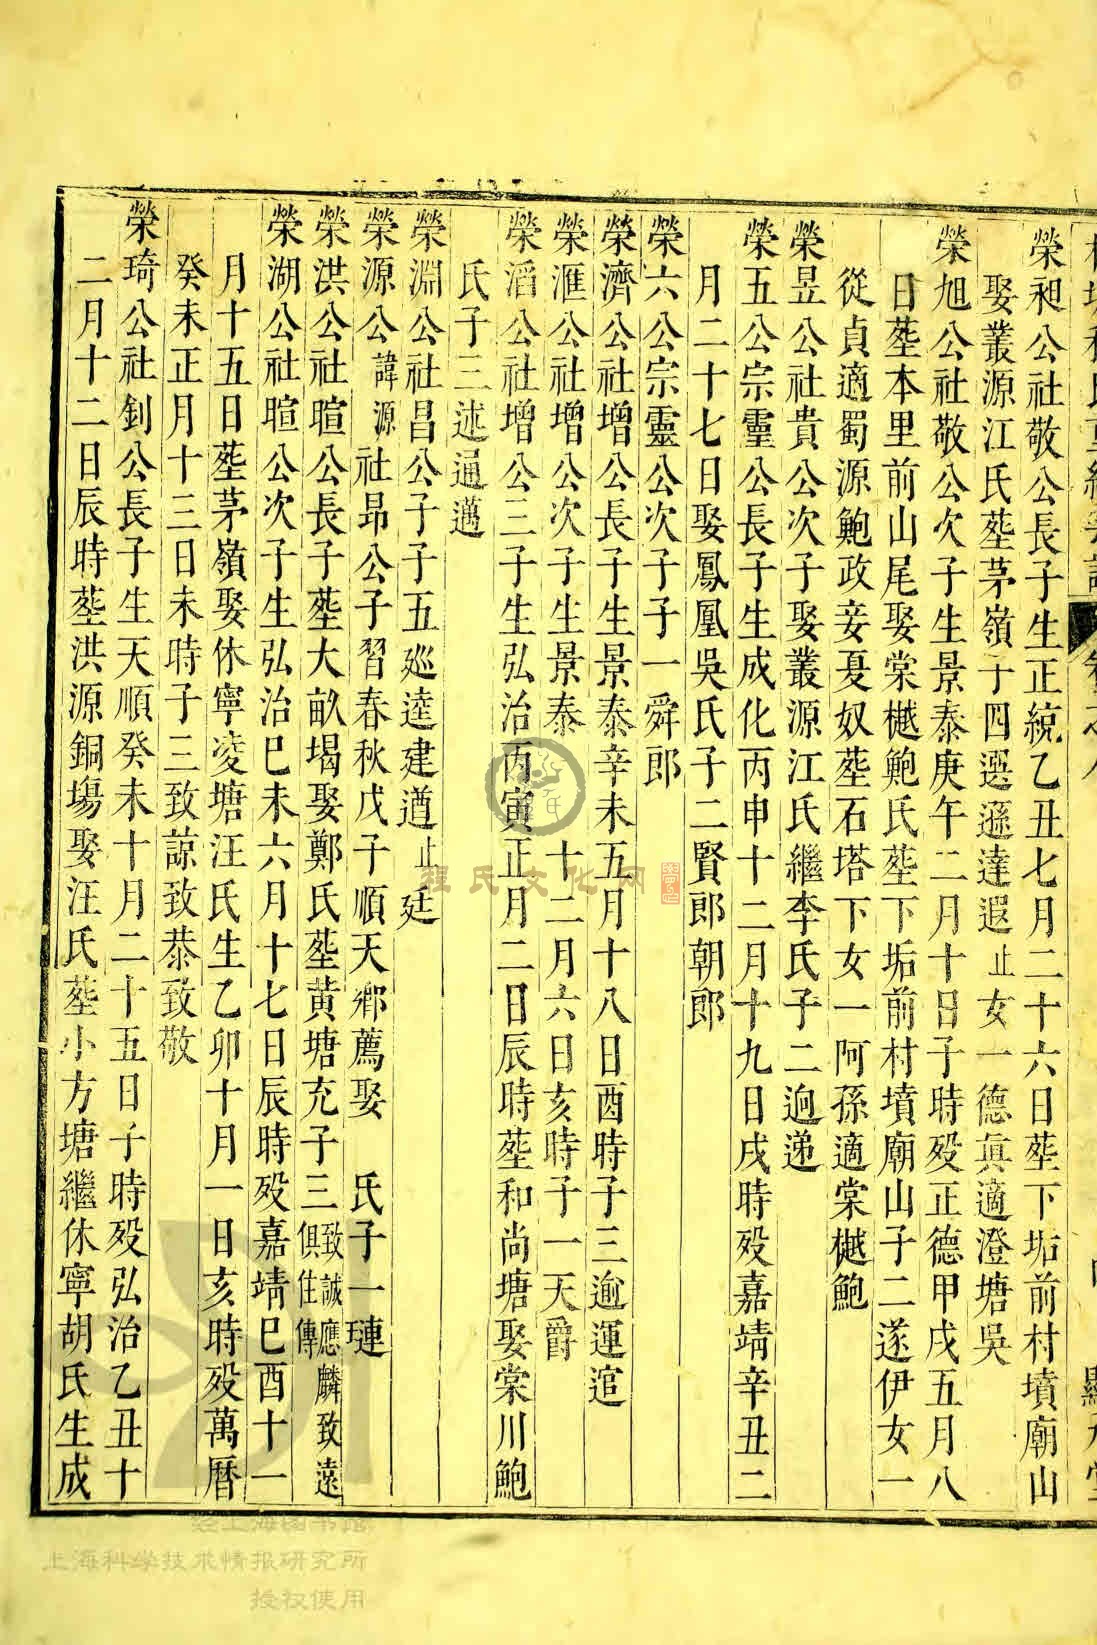 榮昶公社敬公長子生正統乙丑七月二十六日塟下垢前村墳廟山
娶叢源江氏塟茅嶺子四選遜達遐止女一德真適澄塘吳
榮旭公社敬公次子生景泰庚午二月十日子時歿正德甲戌五月八
日塟本里前山尾娶棠樾鮑氏塟下垢前村墳廟山子二遂伊女一
從貞適蜀源鮑政妾夏奴塟石塔下女一阿孫適棠樾鮑
榮昱公社貴公次子娶叢源江氏繼李氏子二逈递
榮五公宗靈公長子生成化丙申十二月十九日戌時歿嘉靖辛丑二
月二十七日娶鳳凰吳氏子二賢郎朝郎
榮六公宗靈公次子子一舜郎
榮濟公社增公長子生景泰辛未五月十八日酉時子三逾運逭
榮滙公社增公次子生景泰 十二月六日亥時子一天爵
榮滔公社增公三子生弘治丙寅正月二日辰時塟和尚塘娶棠川鮑
氏子三述通邁
榮淵公社昌公子子五廵逵建遒止廷
榮源公諱源社昂公子習春秋戊子順天鄉薦娶 氏子一璉
榮洪公社暄公長子塟大畝堨娶鄭氏塟黄塘充子三致誠應麟致遠俱住傳
榮湖公社暄公次子生弘治巳未六月十七日辰時歿嘉靖巳酉十一
月十五日塟茅嶺娶休寧凌塘汪氏生乙卯十月一日亥時歿萬曆
癸未正月十三日未時子三致諒致恭致敬
榮琦公社釗公長子生天順癸未十月二十五日子時歿弘治乙丑十
二月十二日辰時塟洪源銅塲娶汪氏塟小方塘繼休寧胡氏生成
程氏文化网
经上海图书馆
上海科学技术情报研究所
授权使用